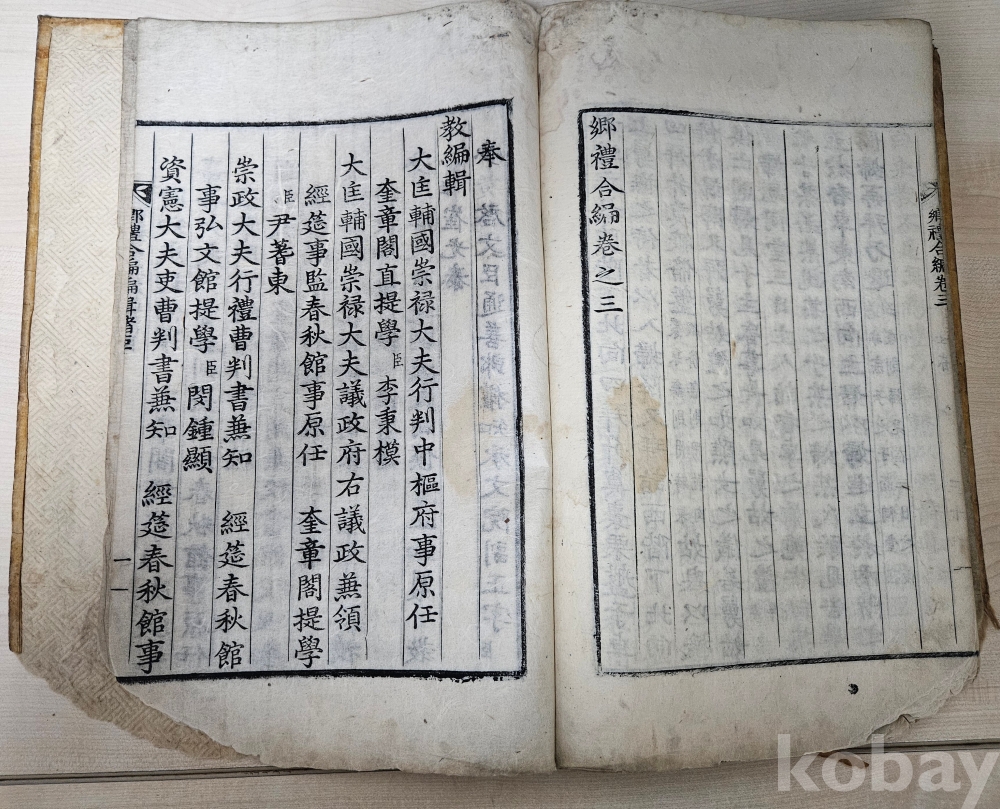 鄉禮合編卷三
鄉禮合編卷之三
奉
教編輯
大匡輔國崇祿大夫行判中樞府事原任
奎章閣直提學臣李秉模
大匡輔國崇祿大夫議政府右議政兼領
經筵事監春秋館事原任 奎章閣提學
臣尹蓍東
崇政大夫行禮曹判書兼知 經筵春秋館
事弘文館提學臣閔鍾顯
資憲大夫吏曹判書兼知 經筵春秋館事
鄉禮合編編輯諸臣
一
kobay